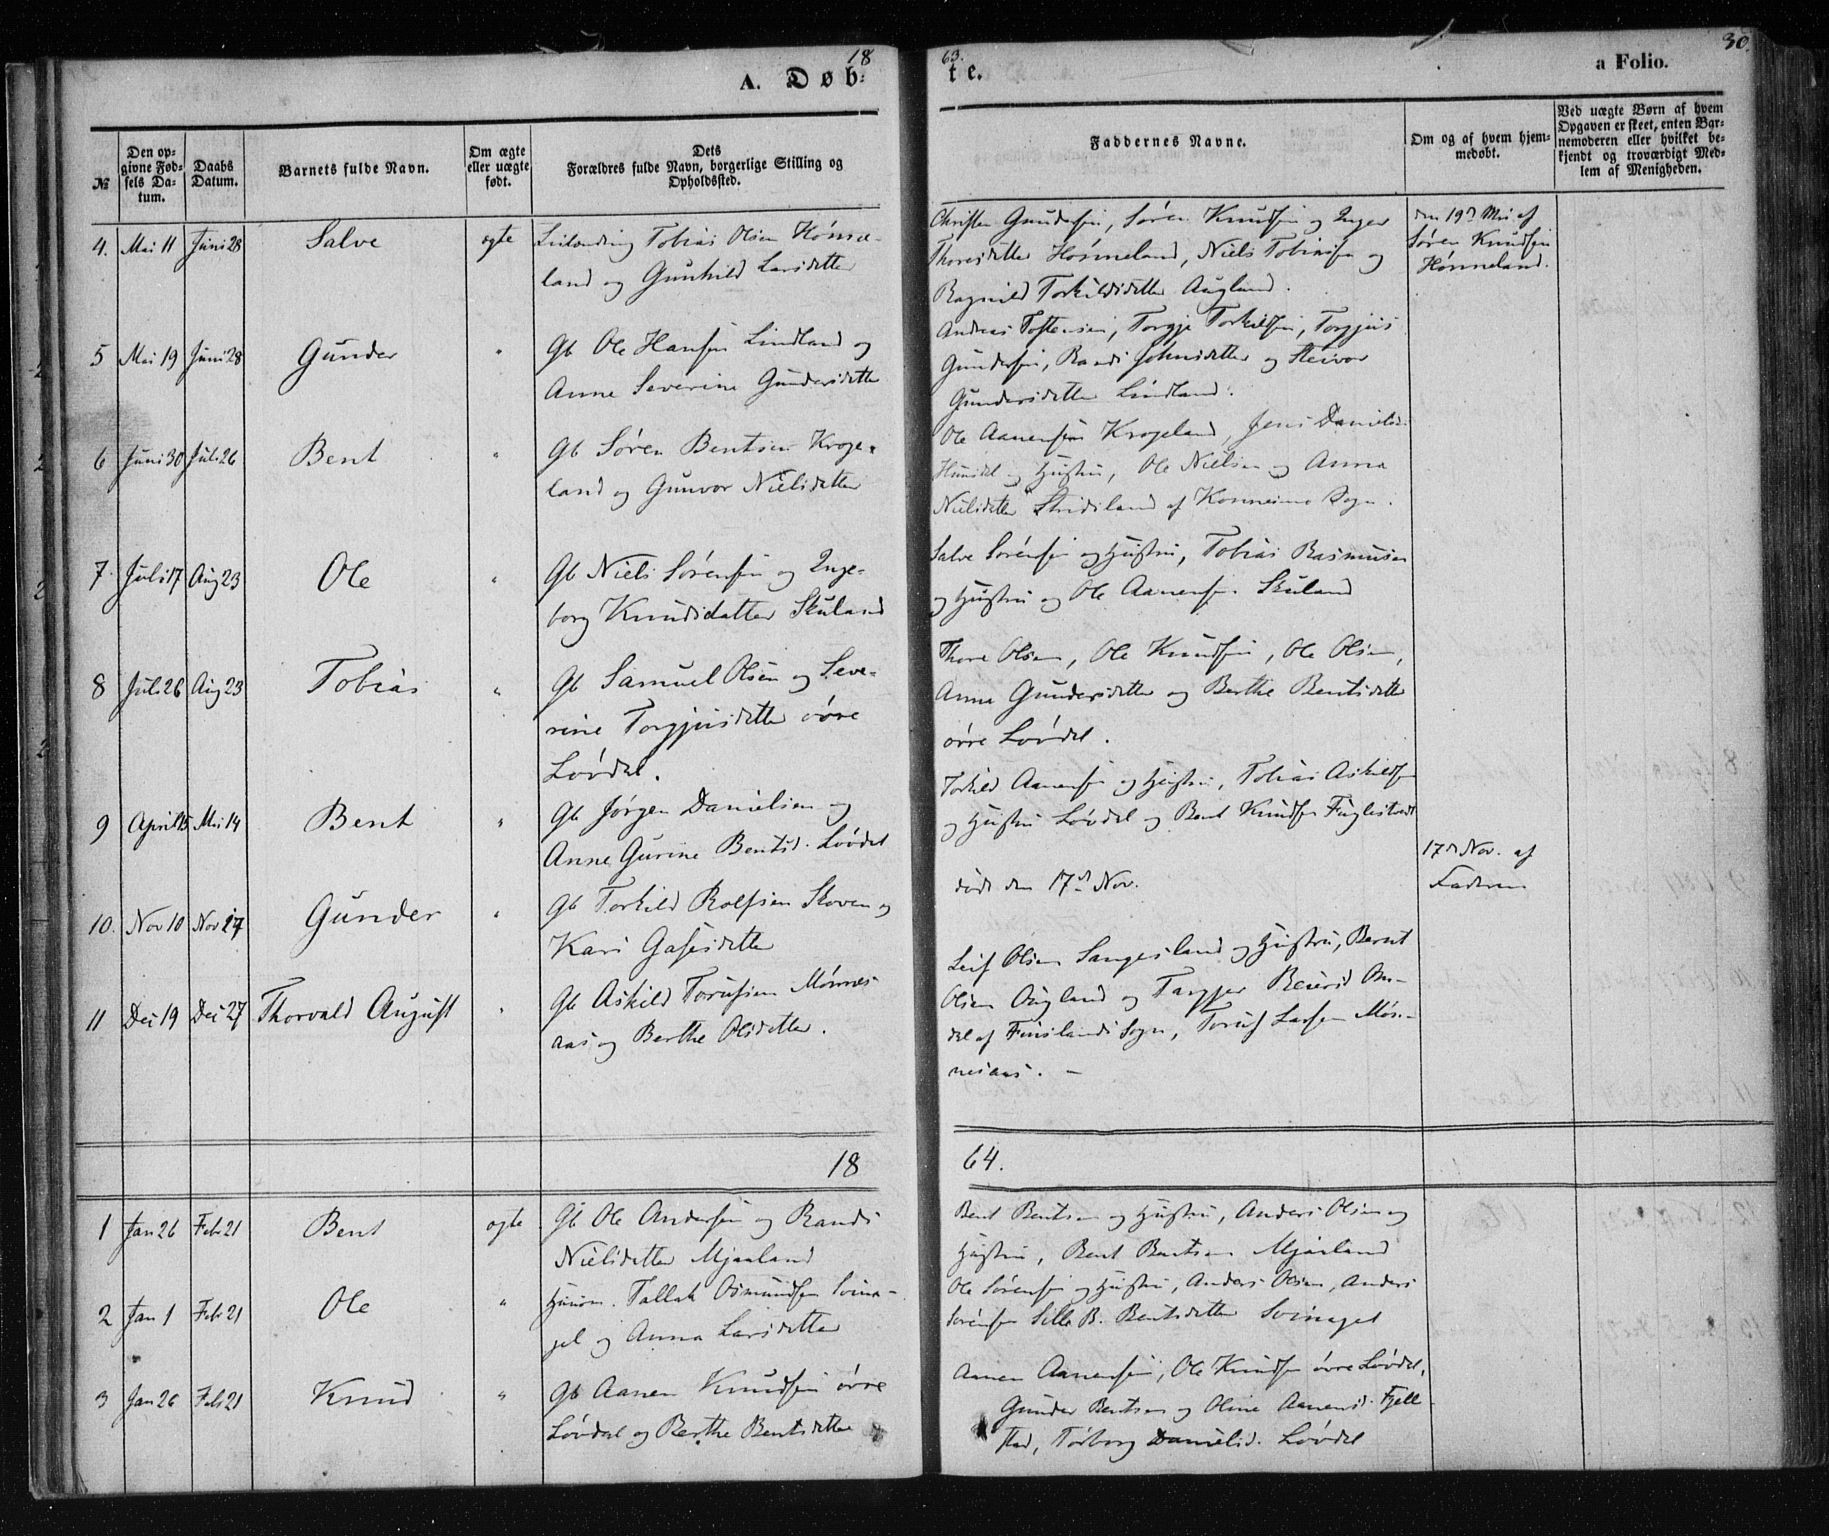 18
63.
30.
A. Døb=
te.
a Folio.
№
Den op-
givne Fød-
sels Da-
tum.
Daabs
Datum.
Barnets fulde Navn.
Om ægte
eller uægte
født.
Dets
Forældres fulde Navn, borgerlige Stilling og
Opholdssted.
Faddernes Navne.
Om og af hvem hjem-
medøbt.
Ved uægte Børn af hvem
Opgaven er skeet, enten Bar-
nemoderen eller hvilket be-
kjendt og troværdigt Med-
lem af Menigheden.
4. Mai 11 Juni 28 Salve ægte Leilænding Tobias Olsen Hønne-
land og Gunhild Larsdatter
Christen Gundersen, Søren Knudsen og Inger
Thoresdatter Hønneland, Niels Tobiasen og
Ragnild Torkildsdatter Augland.
den 19d Mai af
Søren Knudsen
Hønneland.
5 Mai 19 Juni 28 Gunder " Gb Ole Hansen Lindland og
Anne Severine Gundersdatter
Andreas Tostensen, Torgje Torkildsen, Torgjus
Gundersen, Randi Johnsdatter og Steivor
Gundersdatter Lindland.
6 Juni 30 Juli 26 Bent " Gb Søren Bentsen Kroge-
land og Gunvor Nielsdatter
Ole Aanensen Krogeland, Jens Daniels.
Hunsdal og Hustru, Ole Nielsen og Anna
Nielsdatter Stridsland af Konnesmo Sogn.
7. Juli 17 Aug 23 Ole " Gb Niels Sørensen og Inge-
borg Knudsdatter Skuland
Salve Sørensen og Hustru, Tobias Rasmusen
og Hustru og Ole Aanensen Skuland
8 Juli 26 Aug 23 Tobias " Gb Samuel Olsen og Seve-
rine Torgjusdatter øvre
Løvdal.
Thore Olsen, Ole Knudsen, Ole Olsen,
Anne Gundersdatter og Berthe Bentsdatter
øvre Løvdal.
9 April 15 Mai 14 Bent " Gb Jørgen Danielsen og
Anne Gurine Bentsd. Løvdal
Torkild Aanensen og Hustru, Tobias Askildsen
og Hustru Løvdal og Bent Knudsen Fuglestvedt
10. Nov 10 Nov 17 Gunder " Gb Torkild Rolfsen Skoven og
Kari Gasesdatter
døde den 17d Nov.
17d Nov. af
Faderen
11 Dec 19 Dec 27 Thorvald August " Gb Askild Torusen Mønnes-
aas og Berthe Olsdatter.
Leif Olsen Sangesland og Hustru, Bernt
Olsen Augland og
af Finslands Sogn, Toruf Larsen Møn-
nesaas. –
18
64.
1 Jan 26 Feb 21 Bent ægte Gb Ole Andersen og Randi
Nielsdatter Mjaaland
Bent Bentsen og Hustru, Anders Olsen og
Hustru, Bent Bentsen Mjaaland
2 Jan 1 Feb 21 Ole " Husm. Tallak Osmundsen Svina-
gel og Anna Larsdatter
Ole Sørensen og Hustru, Anders Olsen, Anders
Sørensen Sille B. Bentsdatter Svinagel
3 Jan 26 Feb 21 Knud " Gb Aanen Knudsen øvre
Løvdal og Berthe Bentsdatter
Aanen Aanensen, Ole Knudsen øvre Løvdal,
Gunder Bentsen og Oline Aanensd. Fjell-
stad, Torborg Danielsd. Løvdal